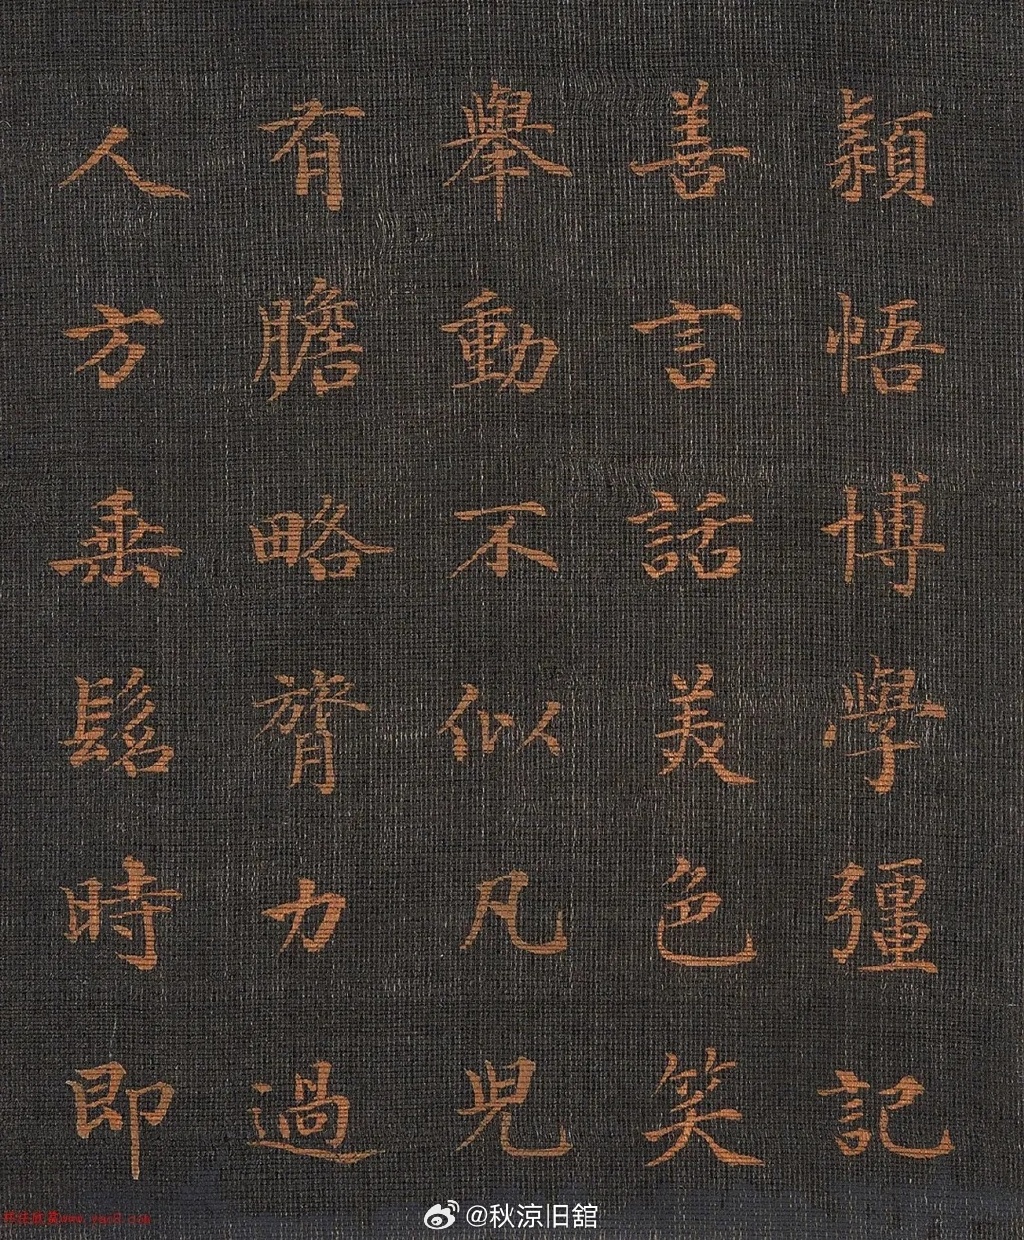 穎悟博學彊記
善言話美色笑
舉動不似凡兒
有膽略膂力過
人方垂髫時即
@秋涼旧舘